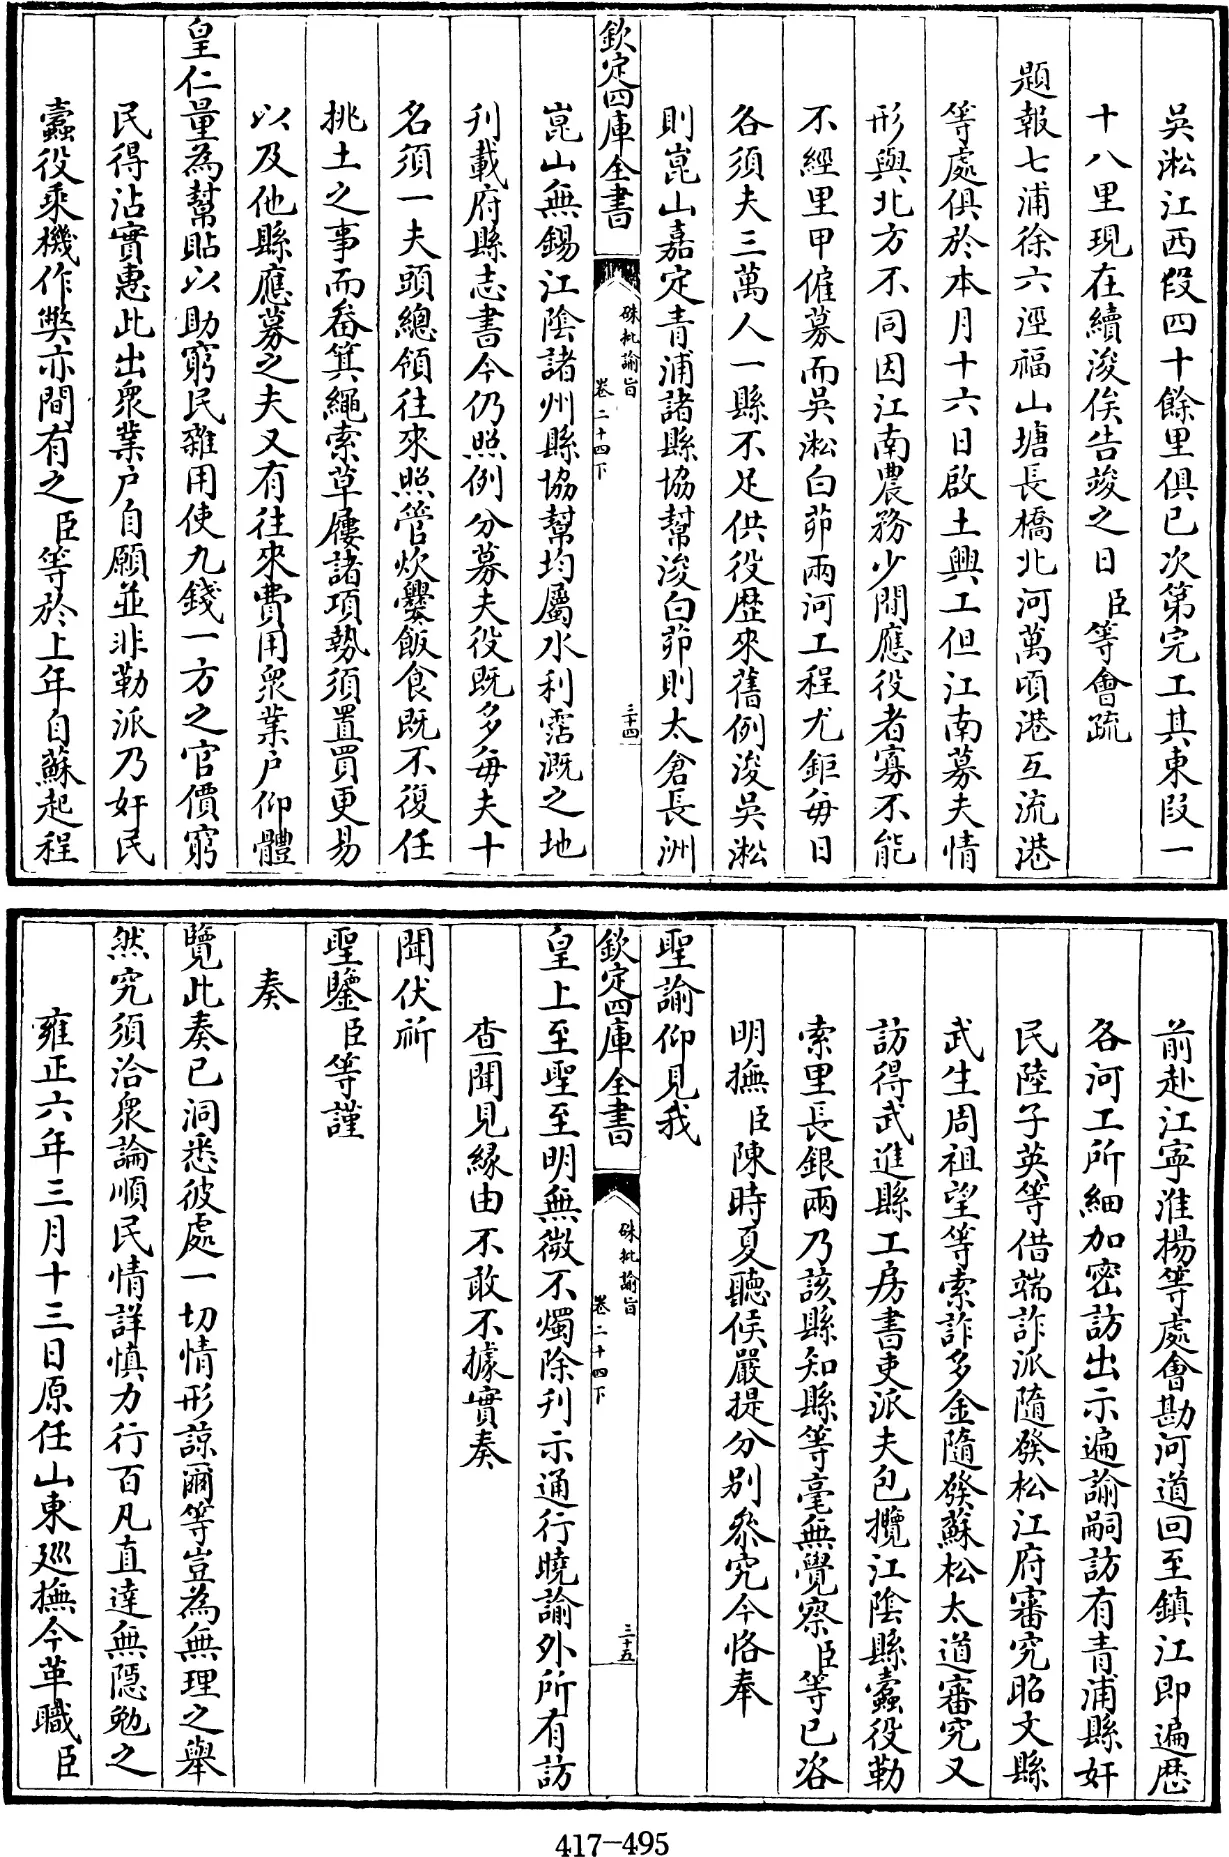 吳淞江西段四十餘里俱已次第完工其東段一
十八里現在續浚俟告竣之日臣等會疏
題報七浦徐六涇福山塘長橋北河萬頃港互流港
等處俱於本月十六日啟土興工但江南募夫情
形與北方不同因江南農務少閒應役者寡不能
不經里甲僱募而吳淞白茆兩河工程尤鉅每日
各須夫三萬人一縣不足供役歷來舊例浚吳淞
則崑山嘉定青浦諸縣協幫浚白茆則太倉長洲
欽定四庫全書
硃批諭旨
卷二十四下
三十四
崑山無錫江陰諸州縣協幫均屬水利霑溉之地
刋載府縣志書今仍照例分募夫役既多每夫十
名須一夫頭總領往來照管炊爨飯食既不復任
挑土之事而畚箕繩索草屨諸項勢須置買更易
以及他縣應募之夫又有往來費用眾業户仰體
皇仁量為幫貼以助窮民雜用使九錢一方之官價窮
民得沾實惠此出眾業户自願並非勒派乃奸民
蠹役乘機作弊亦間有之臣等於上年自蘇起程
前赴江寧淮揚等處會勘河道回至鎮江即遍歷
各河工所細加密訪出示遍諭嗣訪有青浦縣奸
民陸子英等借端詐派隨發松江府審究昭文縣
武生周祖望等索詐多金隨發蘇松太道審究又
訪得武進縣工房書吏派夫包攬江陰縣蠹役勒
索里長銀兩乃該縣知縣等毫無覺察臣等已咨
明撫臣陳時夏聽候嚴提分别叅究今恪奉
聖諭仰見我
欽定四庫全書
硃批諭旨
卷二十四下
三十五
皇上至聖至明無微不燭除刋示通行曉諭外所有訪
查聞見緣由不敢不據實奏
聞伏祈
聖鑒臣等謹
奏
覽此奏已洞悉彼處一切情形諒爾等豈為無理之舉
然究須洽眾論順民情詳慎力行百凡直達無隱勉之
雍正六年三月十三日原任山東廵撫今革職臣
417-495